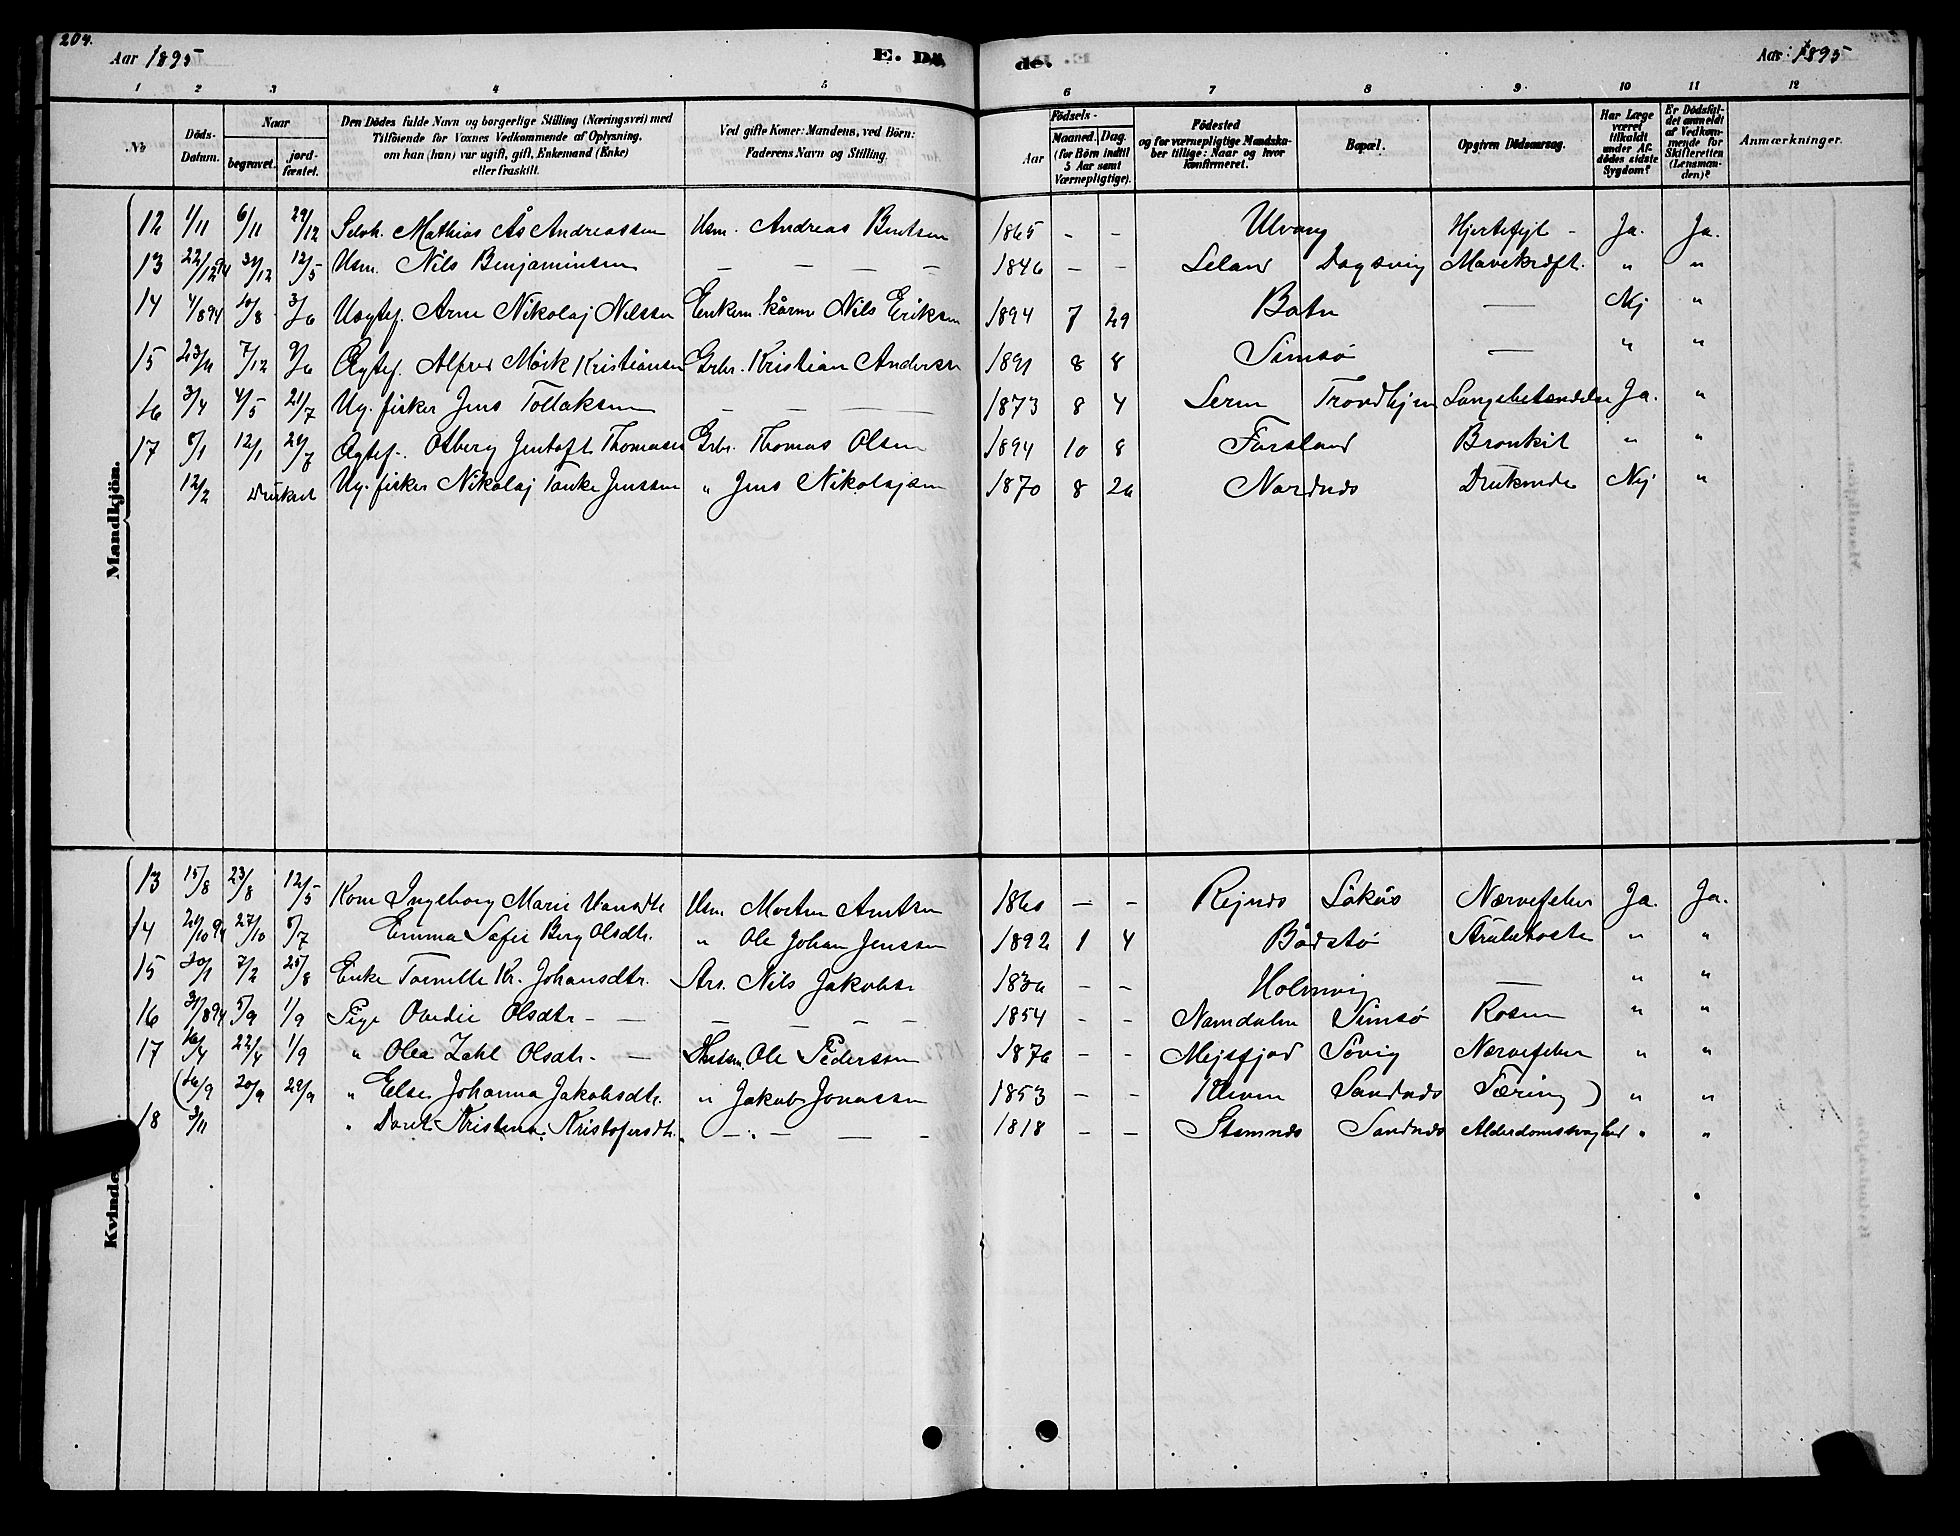 204.
Aar 1895
E. Dö
de.
Aar 1895
1 2 3 4 5 6 7 8 9. 10 11 12
No
Döds-Datum.
Naar
begravet.
jord-fæstet.
Den Dödes fulde Navn og borgerlige Stilling (Næringsvei) med
Tilföiende for Voxnes Vedkommende af Oplysning,
om han (hun) var ugift, gift, Enkemand (Enke)
eller fraskilt.
Ved gifte Koner: Mandens, ved Börn:
Faderens Navn og Stilling.
Födsels-
Aar
Maaned. Dag.
(for Börn indtil
5 Aar samt
Værnepligtige).
Födested
og for værnepligtige Mandska-
ber tillige: Naar og hvor
konfirmeret.
Bopæl.
Opgiven Dödsaarsag.
Har Læge
været
tilkaldt
under Af-
dödes sidste
Sygdom?
Er Dödsfal-
det anmeldt
af Vedkom-
mende for
Skifteretten
(Lensman-
den)?
Anmærkninger.
Mandkjön.
12 1/11 6/11 29/12 Selvh. Mathias Ås Andreassen Usm. Andreas Bentsen 1865 - - Ulvang Hjertefejl - Ja. Ja.
13 22/12 94 31/12 12/5 Usm. Nils Benjaminsen - - - 1846 - - Leland Dagsvig Mavekræft. " "
14 4/8 94 10/8 3/6 Uægtef. Arne Nikolaj Nilssen Enkem. Nils Eriksen 1894 7 29 Botn - Nej "
15 23/11 7/12 9/6 Ægtef. Alfred Mörk Kristiansen Grbr. Kristian Andersen 1891 8 8 Simsö - " "
16 3/4 4/5 21/7 Ug. fisker Jens Tollaksen - - - 1873 8 4 Trondhjem Lungebetændelse Ja. "
17 5/1 12/1 Ægtef. Otberg Jentoft Thomassen Grbr. Thomas Olsen 1894 10 8 Forsland Bronkit " "
12/2 Druknet Ug. fisker Nikolaj Tanke Jenssen " Jens Nikolajsen 1870 8 26 Nordnæs Druknede Nej "
Kvinde
13 15/8 23/8 12/5 Kone Ingeborg Marie Hansdtr. Usm. Morten Arntsen 1860 - - Rejnes Låkås Nervefeber Ja. Ja.
14 27/10 Emma Sofie Berg Olsdtr. " Ole Johan Jenssen 1892 1 4 Bådstö Strubehoste " "
15 30/1 7/2 25/8 Enke Kr. Johansdtr. Års. Nils Jakobsen - - Holmvig - " "
16 31/8 94 5/9 1/9 Pige Ovedie Olsdtr - - - - - 1854 - - Namdalen Simsö Rosen " "
17 16/4 22/4 1/9 " Olea Zahl Olsdtr. - Ole Pederssen 1876 - - Mejsfjord Sövig Nervefeber " "
(16/9 20/9 29/9 " Else Johanna Jakobsdtr. " Jakob Jonassen 1853 - - Sandnes Tæring ) " "
18 3/11 " Kristina Kristofersdtr. - " - - - 1818 - - Stamnes Sandnes Alderdomssvaghed " "